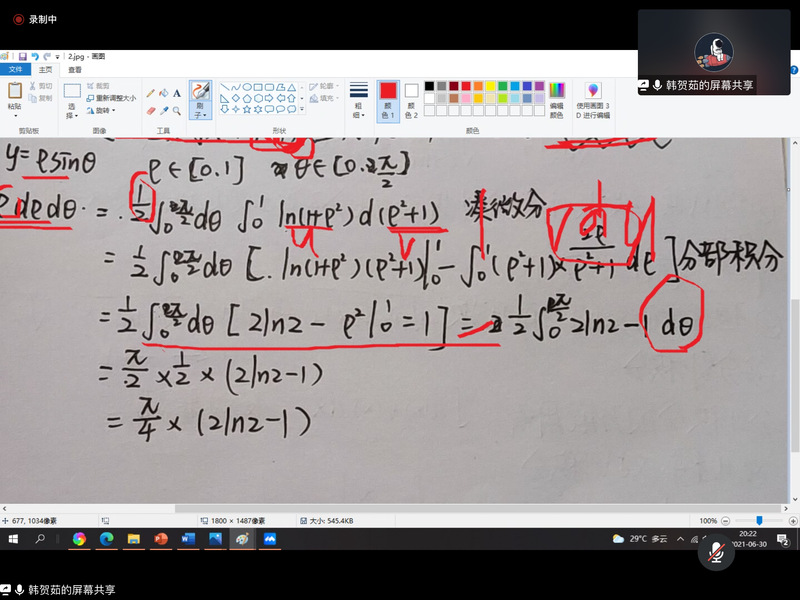 录制中
2.jpg - 画图
文件 主页 查看
粘贴
剪切
复制
选择
裁剪
重新调整大小
旋转
刷子
轮廓
填充
粗细
颜色 1
颜色 2
编辑颜色
使用画图 3D 进行编辑
剪贴板 图像 工具 形状 颜色
韩贺茹的屏幕共享
y=ρsinθ ρ∈[0.1] θ∈[0.π/2]
ρdρdθ = 1/2∫₀^(π/2)dθ ∫₀¹ ln(1+ρ²)d(ρ²+1) 凑微分
= 1/2∫₀^(π/2)dθ[ln(1+ρ²)(ρ²+1)|₀¹-∫₀¹(ρ²+1)×2ρ/(ρ²+1) dρ]分部积分
= 1/2∫₀^(π/2)dθ[2ln2-ρ²|₀¹=1] = 1/2∫₀^(π/2)2ln2-1 dθ
= π/2×1/2×(2ln2-1)
= π/4×(2ln2-1)
677, 1034像素
1800 × 1487像素
大小: 545.4KB
100%
29°C 多云
20:22
2021-06-30
韩贺茹的屏幕共享